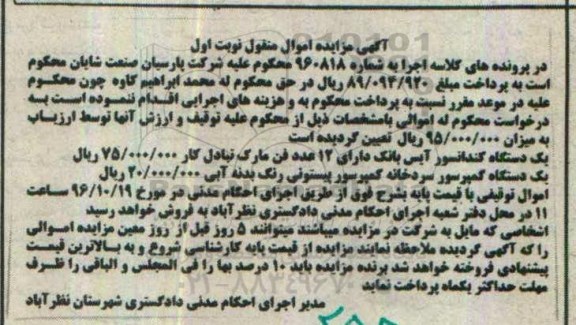 آگهی مزایده اموال منقول نوبت اول
در پرونده های کلاسه اجرا به شماره ۹۶۰۸۱۸ محکوم علیه شرکت پارسیان صنعت شایان محکوم
است به پرداخت مبلغ ۸۹/۰۹۴/۹۲۰ ریال در حق محکوم له محمد ابراهیم کاوه چون محکوم
علیه در موعد مقرر نسبت به پرداخت محکوم به و هزینه های اجرایی اقدام ننموده است به
درخواست محکوم له اموالی بامشخصات ذیل از محکوم علیه توقیف و ارزش آنها توسط ارزیاب
به میزان ۹۵/۰۰۰/۰۰۰ ریال تعیین گردیده است
یک دستگاه کندانسور آیس بانک دارای ۱۲ عدد فن مارک تبادل کار ۷۵/۰۰۰/۰۰۰ ریال
یک دستگاه کمپرسور سردخانه کمپرسور پیستونی رنگ بدنه آبی ۲۰/۰۰۰/۰۰۰ ریال
اموال توقیفی با قیمت پایه بشرح فوق از طریق اجرای احکام مدنی در مورخ ۹۶/۱۰/۱۹ ساعت
۱۱ در محل دفتر شعبه اجرای احکام مدنی دادگستری نظرآباد به فروش خواهد رسید
اشخاصی که مایل به شرکت در مزایده میباشند میتوانند ۵ روز قبل از روز معین مزایده اموالی
را که آگهی گردیده ملاحظه نمایند مزایده از قیمت پایه کارشناسی شروع و به بالاترین قیمت
پیشنهادی فروخته خواهد شد برنده مزایده باید ۱۰ درصد بها را فی المجلس و الباقی را ظرف
مهلت حداکثر یکماه پرداخت نماید
مدیر اجرای احکام مدنی دادگستری شهرستان نظرآباد